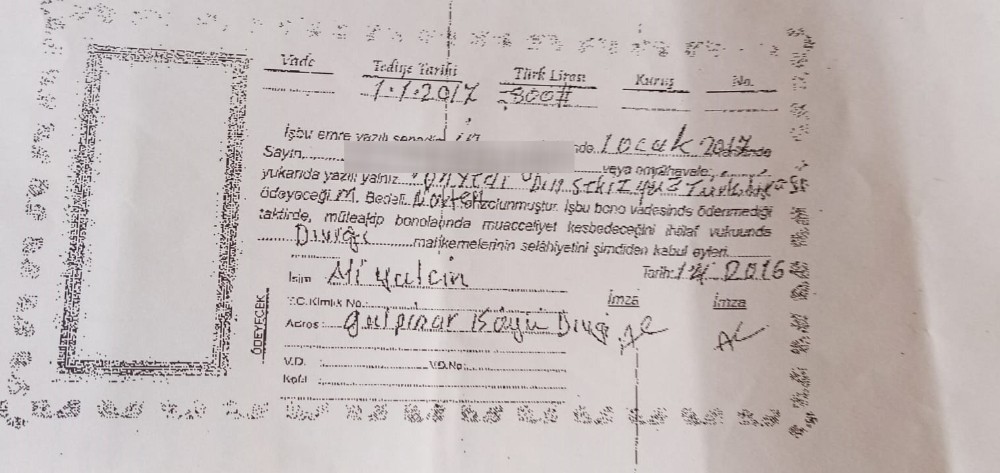 Vade Tediye Tarihi Türk Lirası Kuruş No.
1.1.2017 800#
İşbu emre yazılı senedin in nde 1 Ocak 2017
Sayın, veya emrühavale
yukarıda yazılı yalnız Onyedi bin sekiz yüz Türk lira
ödeyeceği m. Bedeli Nakten olunmuştur. İşbu bono vadesinde ödenmediği
taktirde, müteakip bonolarında muacceliyet kesbedeceğini ihtilaf vukuunda
Divriği mahkemelerinin selâhiyetini şimdiden kabul eyleri.
Tarih: 2016
İsim Ali Yalçin
ÖDEYECEK
T.C. Kimlik No.: İmza İmza
Adres: Gülpınar Köyü Divriği
V.D. V.D.No:
Kefil